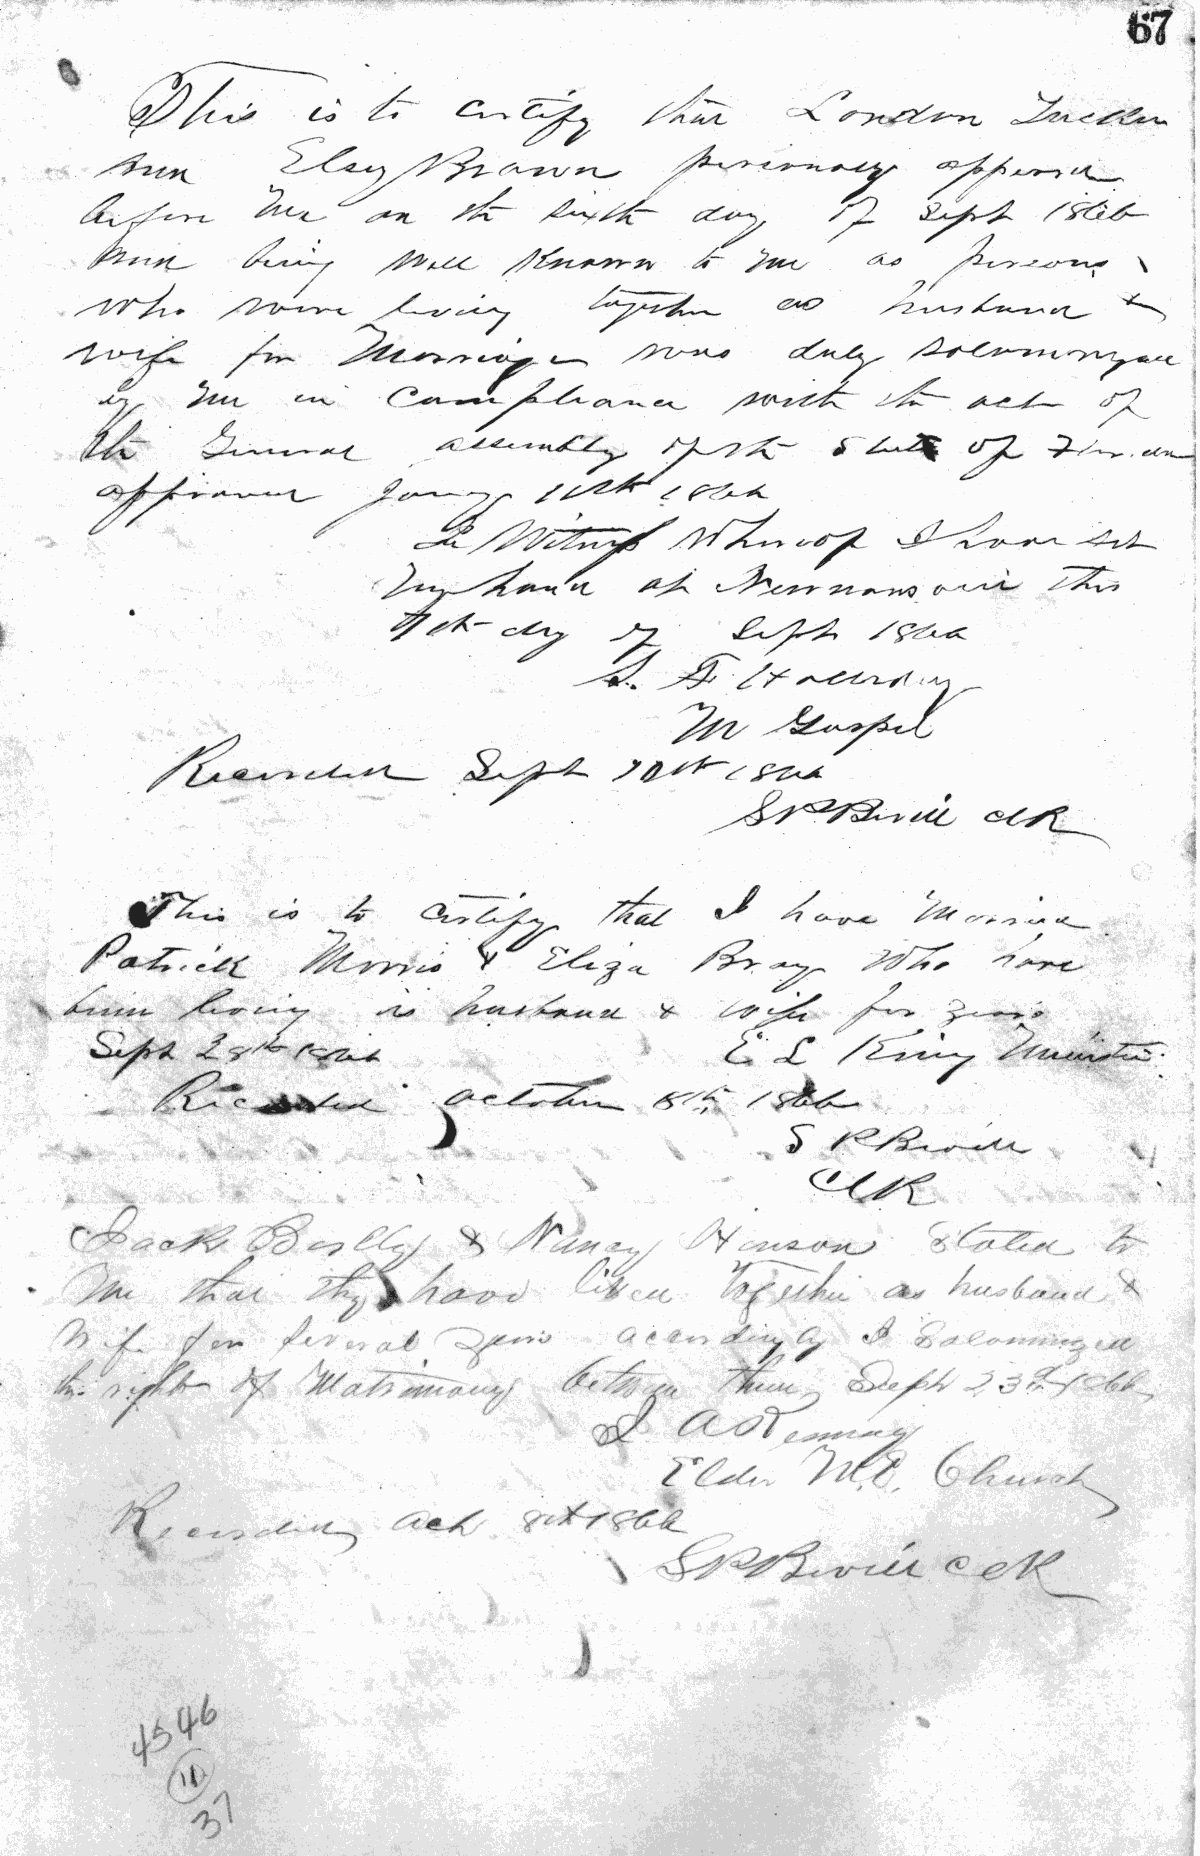 67
This is to certify that London Tucker
and Elsy Brown personaly appeared
before me on the sixth day of Sept 1866
and being well known to me as persons
who were living together as husband &
wife for Marriage was duly solemnyzed
by me in compliance with the act of
the General assembly of the State of Florida
approved Jany 11th 1866
In Witness Whereof I have set
my hand at Newnansvill this
7th day of Sept 1866
S. F. Halliday
M Gospel
Recorded Sept 10th 1866
S P Bevill Clk
This is to certify that I have Married
Patrick Morris & Eliza Bray Who have
been living is husband & wife for years
Sept 28th 1866 E L King Minister
Recorded October 8th 1866
S P Bevill
Clk
Jack & Nancy Henson Stated to
me that they have lived Together as husband &
wife for several years accordingly I solominized
the right of Matrimony between them Sept 23rd 1866
Elder M.E. Church
Recorded Oct 8th 1866
S P Bevill Clk
4546
11
37